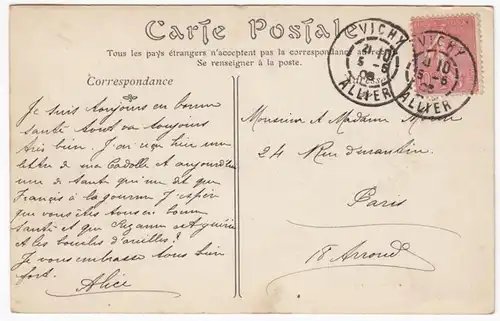 Carte Postale
Tous les pays étrangers n'acceptent pas la correspondance au
Se renseigner à la poste.
Correspondance
VICHY
21 10
5 - 6
ALLIER
VICHY
10
5 - 6
ALLIER
Je suis toujours en bonne
santé tout va toujours
très bien. J'ai reçu hier une
lettre de ma et aujourd'hui
une de qui me dit que
François a la gourme J'espère
que vous êtes tous en bonne
santé et que Suzanne
et les boucles d'oreilles?
Je vous embrasse tous bien
fort.
Alice
Monsieur et Madame
24 Rue
Paris
18 Arrond